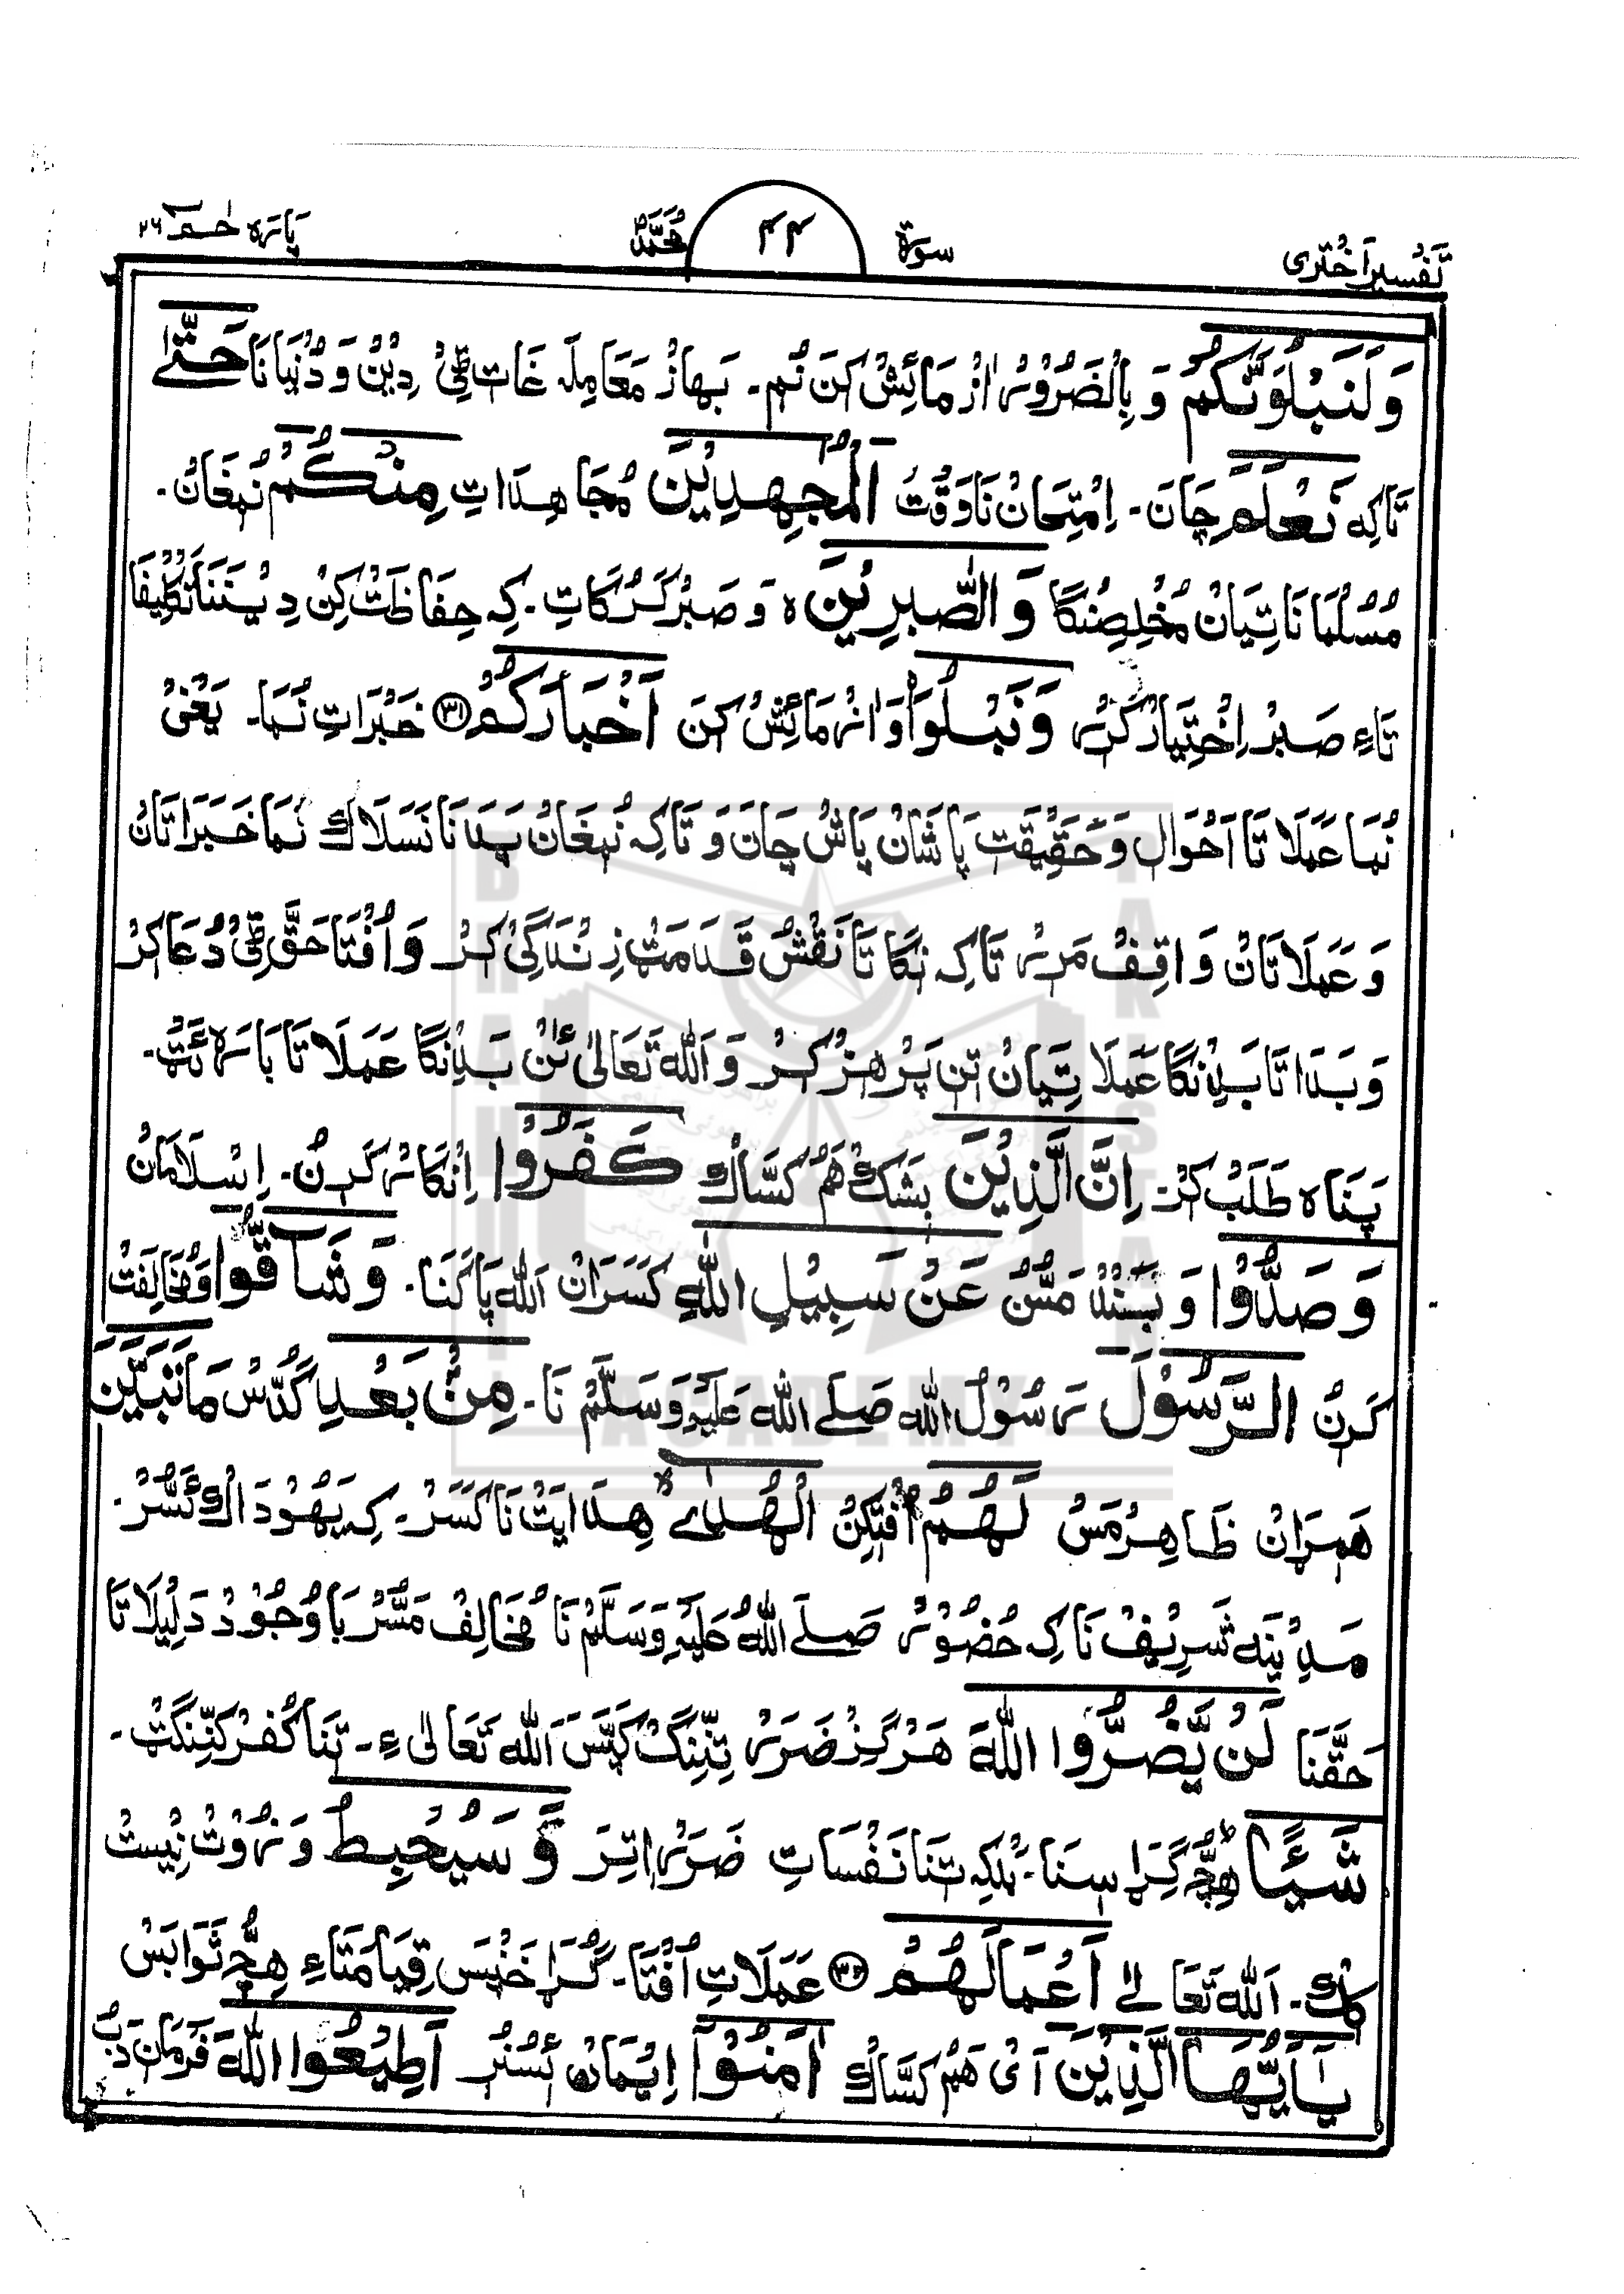 تَفْسِیْر اَخْتَرِی سورۃ ۴۴ مُحَمَّدؐ پَارَہ حٰمٓ ۲۶
وَلَنَبْلُوَنَّكُمْ وَ بِالْضَرُوْر اٰزْمَائِشْ کَن نُم۔ بَھَازْ مَعَامِلَہ غَات ٹِیْ دِیْنْ وَ دُنْیَا نَا حَتّٰے
تَاکِہ نَعْلَمَ چَان۔ اِمْتِحَانْ نَا وَقْتْ الْمُجٰهِدِیْنَ مُجَاهِدَاتِ مِنْكُمْ نُمْغَانْ۔
مُسُلْمَا نَا تِیَانْ مُخْلِصِنْگا وَالصّٰبِرِیْنَ ہ وَ صَبْرْ کَرُکَاتِ۔ کِہ حِفَاظَتْ کِنْ دِیْنَنَا تَکْلِیْفَا
تَاءِ صَبْرْ اِخْتِیَارْ کَرْر وَنَبْلُوَا۟ وَ اٰزْمَائِشْ کَن اَخْبَارَكُمْ ۝۳۱ خَبْرَاتِ نُمَا۔ یَعْنِیْ
نُمَا عَمَلَا تَا اَحْوَال وَ حَقِیْقَت پَاشَانْ پَاشْ چَان وَ تَاکِہ نُمْغَانْ بَدَ نَا نَسَلَاکْ نُمَا خَبَرَاتَانْ
وَ عَمَلَاتَانْ وَاقِفْ مَرْر تَاکِہ نِکَا تَا نَقْشْ قَدَمَٹْ زِنْدَگِیْ کَرْ وَ اُفْتَا حَقَّ ٹِیْ دُعَا کَرْ
وَ بَدَا تَا بَدِنْگَا عَمَلَا تِیَانْ تِن پَرْهِزْ کَرْ وَ اَللّٰہ تَعَالٰی ئَنْ بَدِنْگَا عَمَلَا تَا بَارَہ ئَٹْ۔
پَنَاہ طَلَبْ کَرْ اِنَّ الَّذِیْنَ بَشَكْ هَمْ کَسَّاكْ كَفَرُوْا اِنْکَار کَرِنْ۔ اِسْلَامَانْ
وَ صَدُّوْا وَ بَنْدْ مَسُّن عَنْ سَبِیْلِ اللّٰهِ کَسَرَانْ اَللّٰہ پَاکَنَا۔ وَ شَآقُّوا وَ مُخَالِفَتْ
کَرِنْ الرَّسُوْلَ رَسُوْلُ اللّٰہ صَلَے اللّٰہ عَلَیْہِ وَسَلَّمْ نَا۔ مِنْۢ بَعْدِ گُدُّسْ مَا تَبَیَّنَ
هَمرَانْ ظَاهِرْ مَسْ لَهُمُ اُفْتِکِنْ الْهُدٰی هِدَایَتْ نَا کَسَرْ۔ کِہ یَھُوْدَ اكْ ئَسُّرْ۔
مَدِیْنَہ شَرِیْفْ نَا کِہ حُضُوْر صَلَے اللّٰهُ عَلَیْہِ وَسَلَّمْ نَا مُخَالِفْ مَسُّرْ بَا وُجُوْدْ دَلِیْلَا تَا
حَقَّنَا لَنْ یَّضُرُّوا اللّٰهَ هَرْگِزْ ضَرَر تِنِنْگْ کَپَّس اَللّٰہ تَعَالٰی ءِ۔ تِنَا کُفْر کَنِّنْگَٹْ۔
شَیْــٴًـا هِچُّ گِرَاسِنَا۔ بَلْکِہ تِنَا نَفْسَاتِ ضَرَر اِتِر وَ سَیُحْبِطُ وَ زُوْتْ نِیْسْتْ
کك۔ اَللّٰہ تَعَالےٰ اَعْمَالَهُمْ ۝۳۲ عَمَلَاتِ اُفْتَا۔ گُرَا خَنْپَس قِیَامَتَاءِ هِچُّ ثَوَابَسْ
یٰۤاَیُّهَا الَّذِیْنَ آئ هَمْ کَسَّاكْ اٰمَنُوْۤا اِیْمَانْ ہَسُنُر اَطِیْعُوا اللّٰهَ فَرْمَان دَبُ